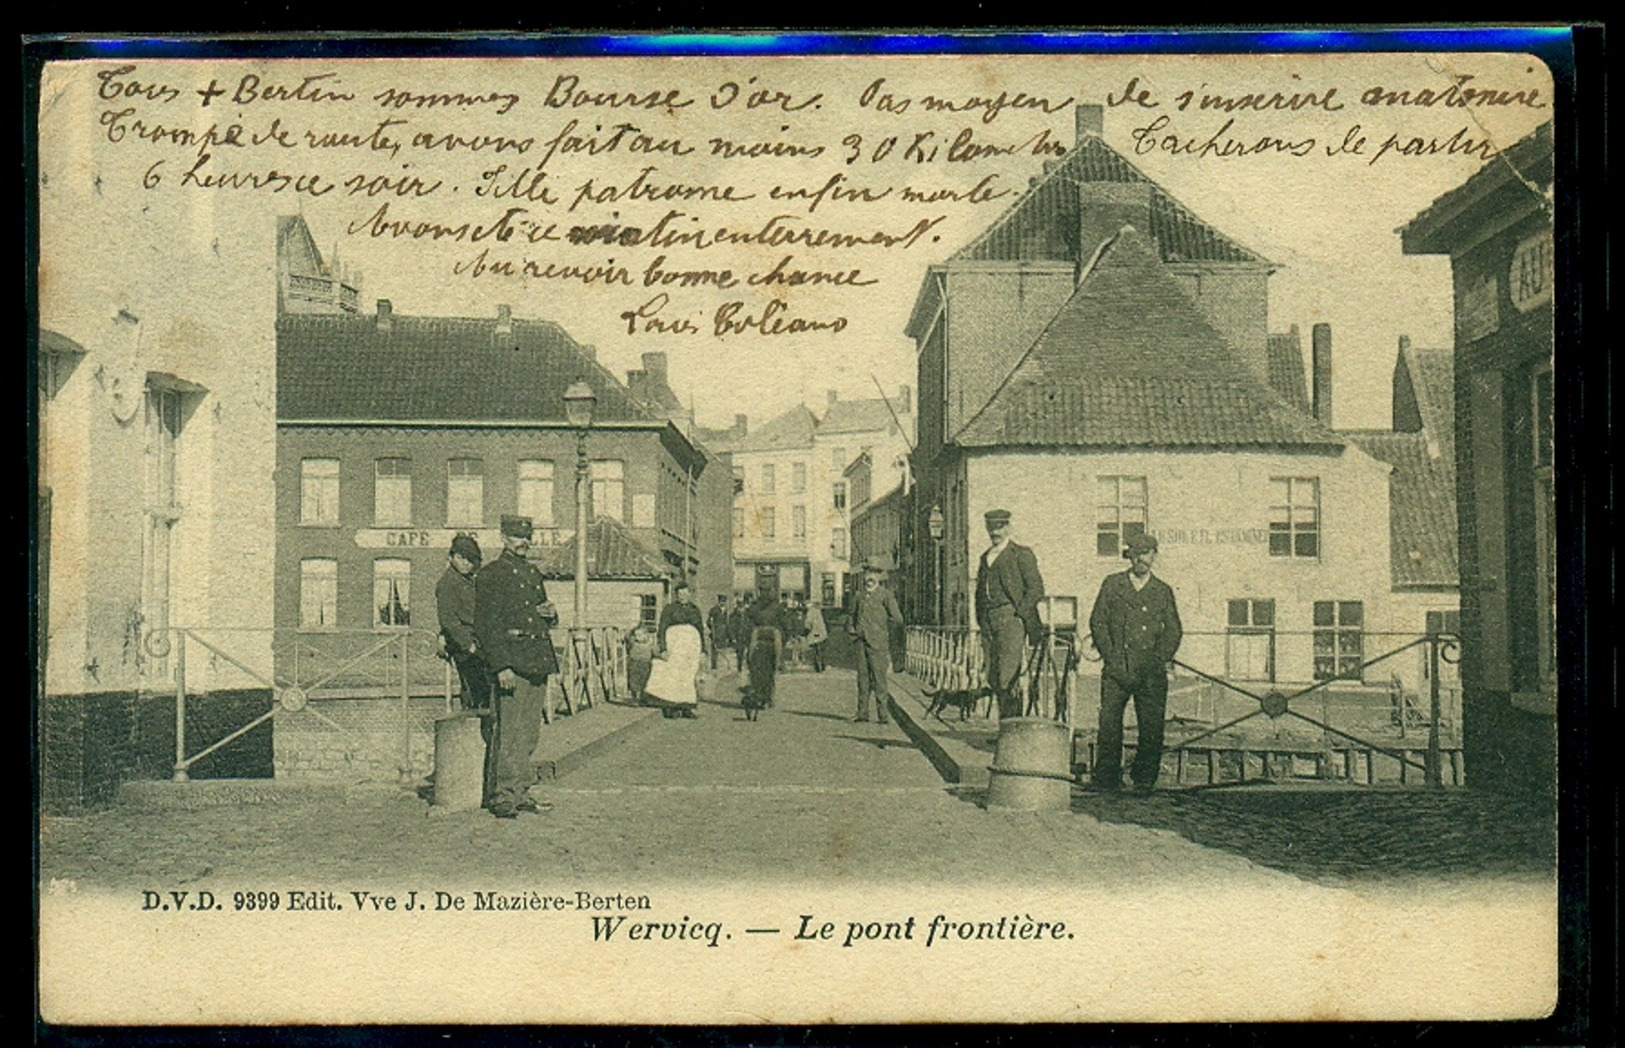 Tous + Bertin sommes Bourse d'or. Pas moyen de s'inscrire anatomie
Trompé de route, avons fait au moins 30 Kilometres Tacherons de partir
6 heures ce soir. Fille patronne enfin morte.
Avons été ce matin enterrement.
Au revoir bonne chance
Louis
AU
CAFÉ DE
D.V.D. 9399 Edit. Vve J. De Mazière-Berten
Wervicq. — Le pont frontière.